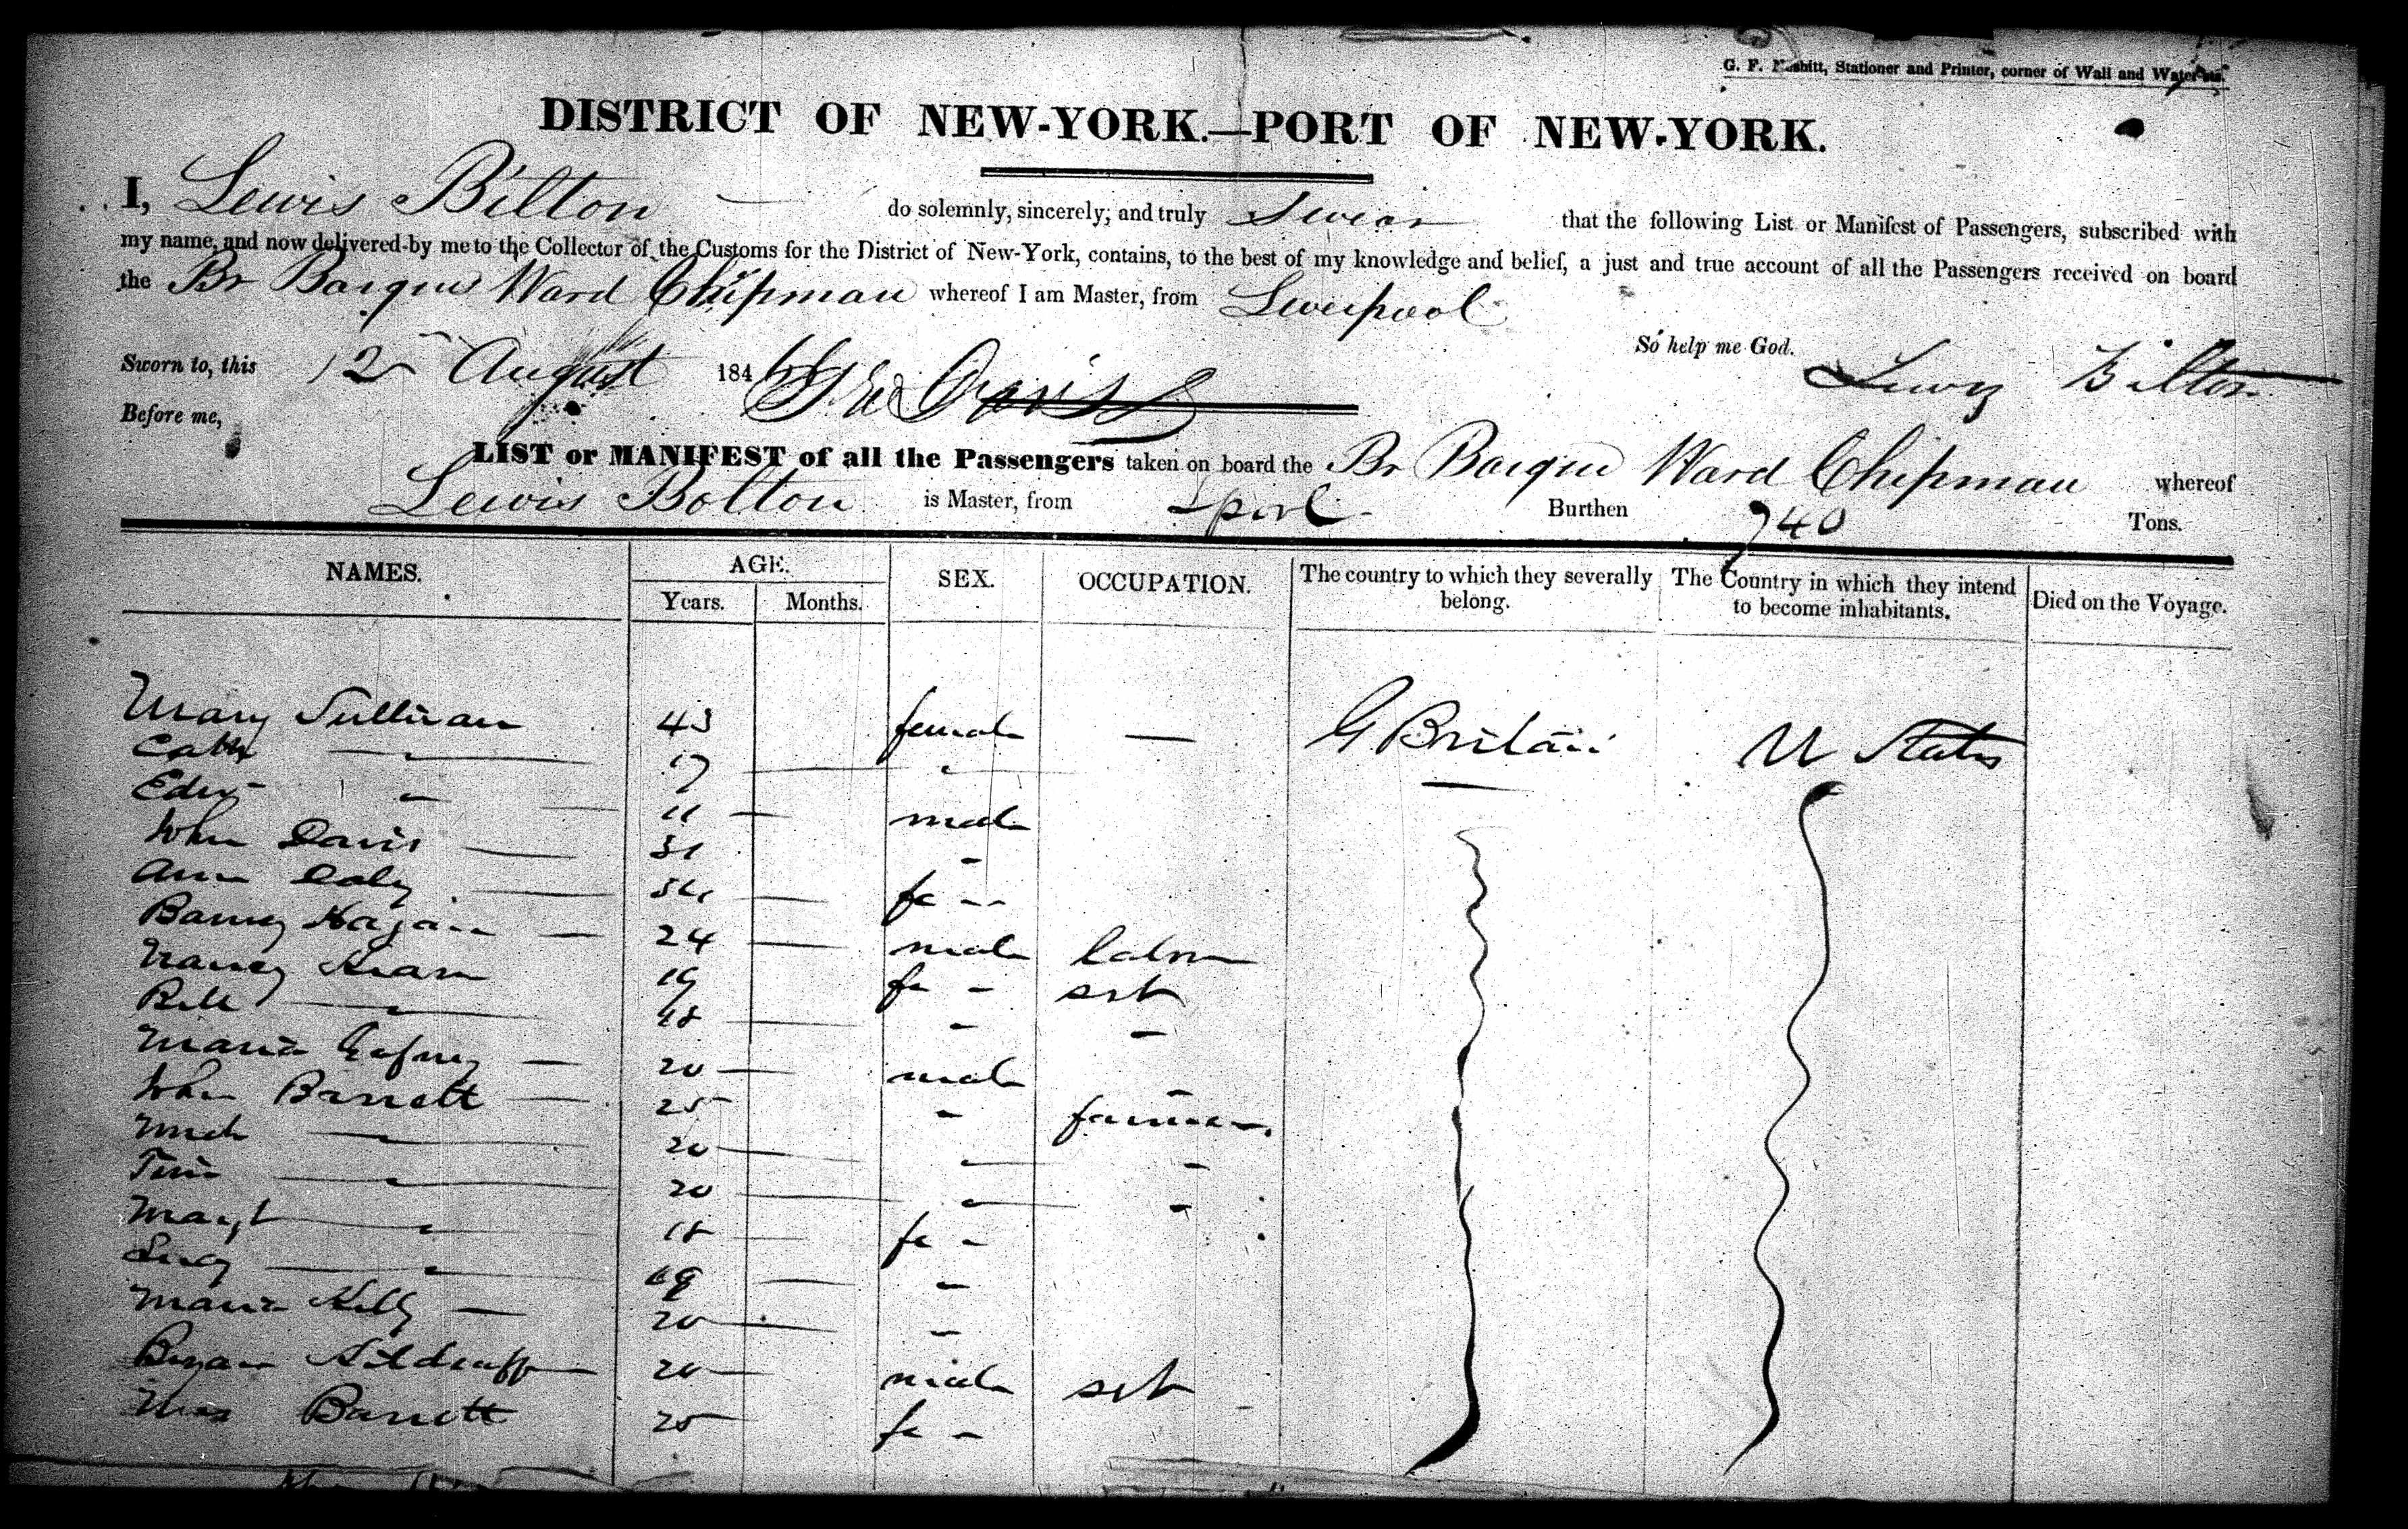 G. F. Nesbitt, Stationer and Printer, corner of Wall and Water sts.
DISTRICT OF NEW-YORK.—PORT OF NEW-YORK.
I, Lewis Bilton — do solemnly, sincerely, and truly Swear that the following List or Manifest of Passengers, subscribed with
my name, and now delivered by me to the Collector of the Customs for the District of New-York, contains, to the best of my knowledge and belief, a just and true account of all the Passengers received on board
the Br Barque Ward Chipman whereof I am Master, from Liverpool
So help me God.
Sworn to, this 12 August 1846 Davis Lewis Bilton
Before me,
LIST or MANIFEST of all the Passengers taken on board the Br Barque Ward Chipman whereof
Lewis Bolton is Master, from Lpool Burthen 740 Tons.
NAMES. AGE. SEX. OCCUPATION. The country to which they severally belong. The Country in which they intend to become inhabitants. Died on the Voyage.
Years. Months.
Mary Sullivan 43 female — G Britain U States
Cath " 17 "
Edwd " 11 male
John Davis 31 "
Ann Daly fe "
Barney Hagan 24 male labor
Nancy Kearn 19 fe " sert
" 18 " "
Maria Gafney 20 male "
John Barrett 25 " farmer
Mich " 20 " "
Tim " 20 " "
Margt " 18 fe "
Lucy " 19 "
Maria Kelly 20 "
Bryan 20 male sert
Barrett 25 fe "